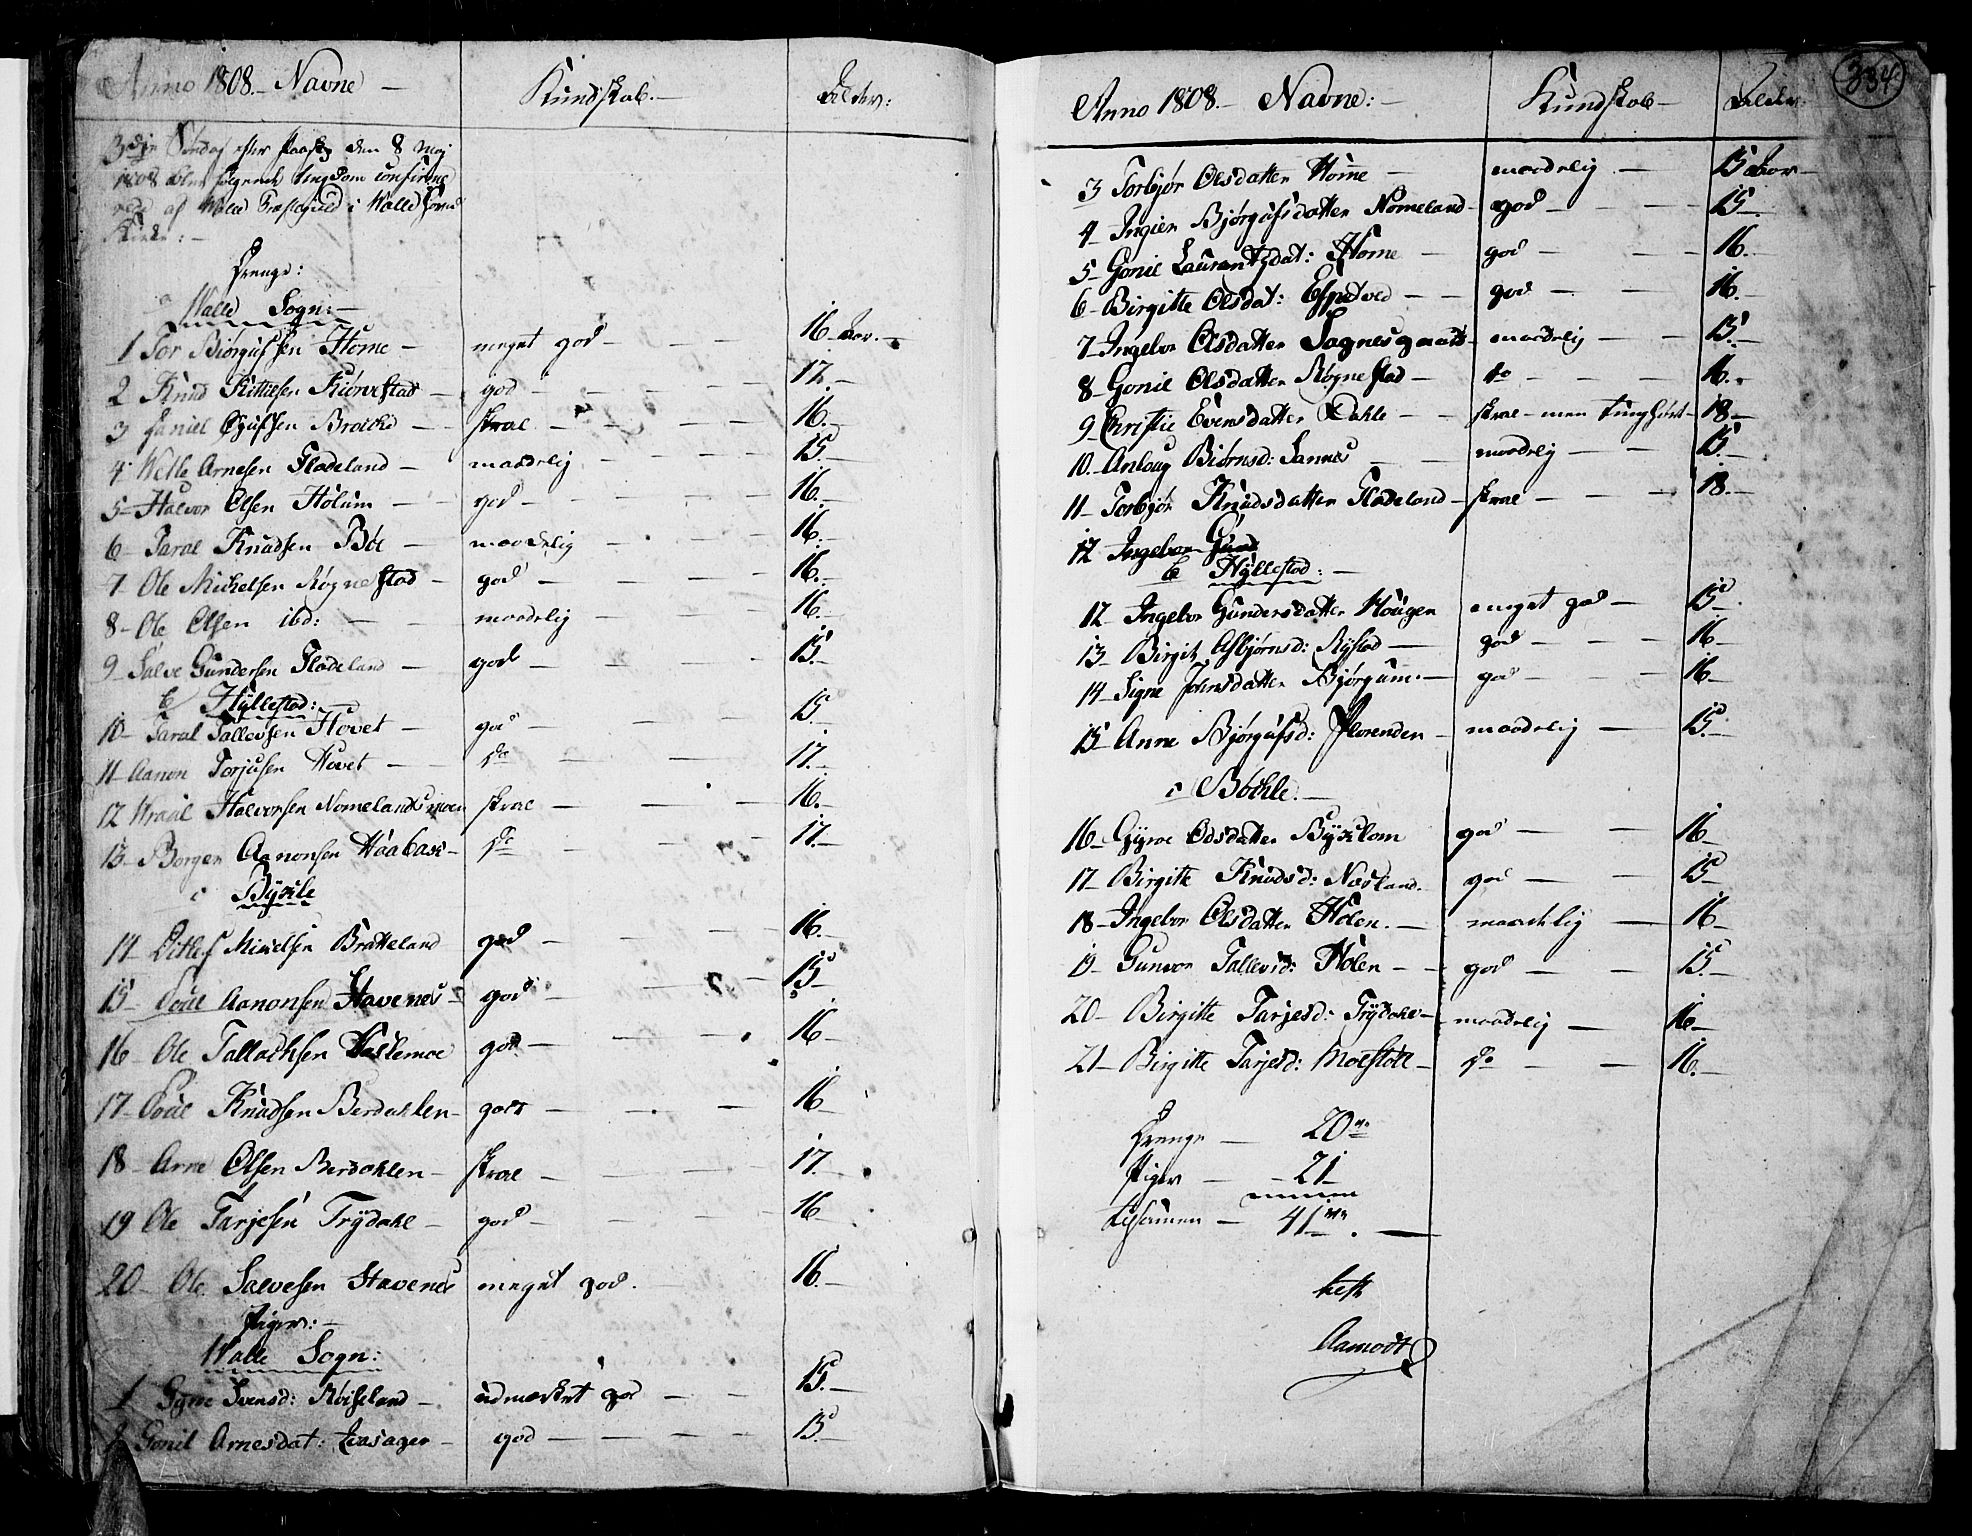 Anno 1808. Navne — Kundskab. — Alder:
3die Søndag efter Paaske den 8 May
1808 blev følgende Ungdom confirme
rede af Walle Præstegield i Walle Hoved
Kirke: —
Drenge:
a Walle Sogn: —
1 Tor Biørgufsen Homme — meget god — 16 Aar. —
2 Knud Kittilsen Kiørvestad — god — 17. —
3 Daniel Gufsen Brocke — skral — 16. —
4 Wille Arnesen Flodeland — maadelig — 15. —
5 — Halvor Olsen Holum — god — 16. —
6 — Taral Knudsen Bøe — maadelig — 16. —
7 Ole Mickelsen Rygnestad — god — 16. —
8 — Ole Olsen ibd: — maadelig — 16. —
9 Salve Gundersen Flodeland — god — 15. —
b Hyllestad: —
10 — Taral Tallevsen Hovet — god — 15. —
11 — Aanon Torjusen Hovet — do — 17. —
12 Wraal Halvorsen Nomelandsmoen skral — 16. —
13 — Borger Aanonsen Haabast — do — 17. —
c Bykle
14 — Ditlef Mikelsen Bratteland god — 16. —
15 — Poul Aanonsen Stavenes — god — 15 —
16 — Ole Tallachsen god — 16 —
17 — Poul Knudsen Berdahlen — god — 16
18 — Arne Olsen Berdahlen — skral — 17. —
19 Ole Tarjesen Trydahl — god — 16 —
20 — Ole Salvesen Stavenes meget god. 16. —
Piger: —
Walle Sogn:
1 Gyro Svensd: Røiseland — udmærket god — 15. —
2 Gonil Arnesdat: — god — 15. —
334
Anno 1808. — Navne: — Kundskab — Alder:
3 — Torbjør Olsdatter Homme — maadelig — 15 Aar —
4 — Ingier Bjørgufsdatter Nomeland — god — 15. —
5 — Gonil Laurantzdat: Home — god — 16. —
6 — Birgitte Olsdat: Espetved — god — 16. —
7 — Ingebor Olsdatter Sagnesgaard — maadelig — 15. —
8 — Gonil Olsdatter Rygnestad — do — 16. —
9 — Christie Evensdatter Dahle — skral — men tunghørt — 18 —
10. — Anlaug Biørnsd: Sannes maadelig — 15. —
11 — Torbjør Knudsdatter Flodeland — skral — 18. —
12 Ingebor Gund
b Hyllestad: —
12 — Ingebor Gundersdatter Hougen meget god — 15 —
13 — Birgit Asbjørnsd: Rystad — god — 16 —
14 — Signe Johnsdatter Bjørgum. — god — 16 —
15 — Anne Bjørgufsd: Florenden — maadelig — 15. —
c Bøchle. —
16 — Gyroe Odsdatter Byxlom god — 16 —
17 — Birgitte Knudsd: Næsland. god — 15 —
18 — Ingebor Olsdatter Holen. — maadelig — 16 —
19 — Gunvor Tallevsd: Holen — god — 15. —
20 — Birgitte Tarjesd: Trydahl — maadelig — 16 —
21 — Birgitte Tarjesd: Moestøll — do — 16. —
Drenge — 20
Piger — 21
Tilsammen — 41
test
Aamodt